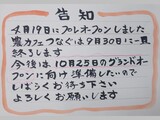 告知
4月19日にプレオープンしました
農カフェつなぐは9月30日に一旦
終ろします
今後は10月25日のグランドオ
ープンに向け準備したいので
しばらくお待ち下さい
よろしくお願いします